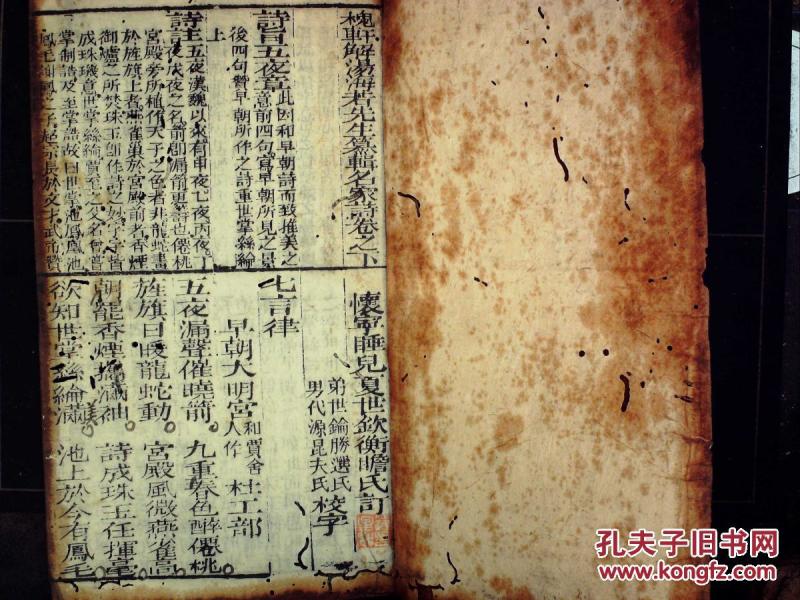 槐軒解湯海若先生纂輯名家詩卷之下
詩旨五夜章此因和早朝詩而致推美之
意前四句寫早朝所見之景
後四句贊早朝所作之詩重世掌絲綸
上
詩註五夜漢魏以來有甲夜乙夜丙夜丁
夜戊夜之名箭卽漏箭更籌也僊桃
宮殿旁所植作天子之色者非龍蛇畫
於旌旗上者燕雀巢於宮殿前者香煙
御爐之所焚珠玉卽作詩之妙字字皆
成珠璣意世掌絲綸賈至之父名曾嘗
掌制誥及至掌誥故曰世掌池鳳凰池
懷寧睡兒夏世欽衡瞻氏訂
弟世錀勝選氏
男代源昆夫氏校字
七言律
早朝大明宮和賈舍人作 杜工部
五夜漏聲催曉箭。九重春色醉僊桃
旌旗日暖龍蛇動。宮殿風微燕雀高
朝罷香煙攜滿袖。詩成珠玉在揮毫
欲知世掌絲綸美。池上於今有鳳毛
孔夫子旧书网
www.kongfz.com